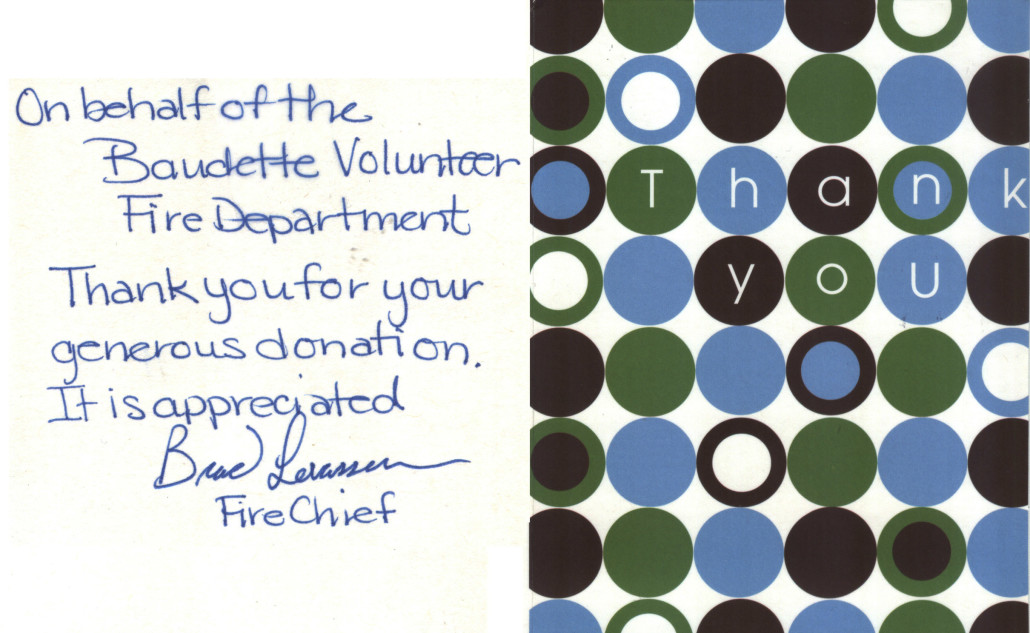 On behalf of the
Baudette Volunteer
Fire Department
Thank you for your
generous donation.
It is appreciated
Brad
Fire Chief
Thank
you